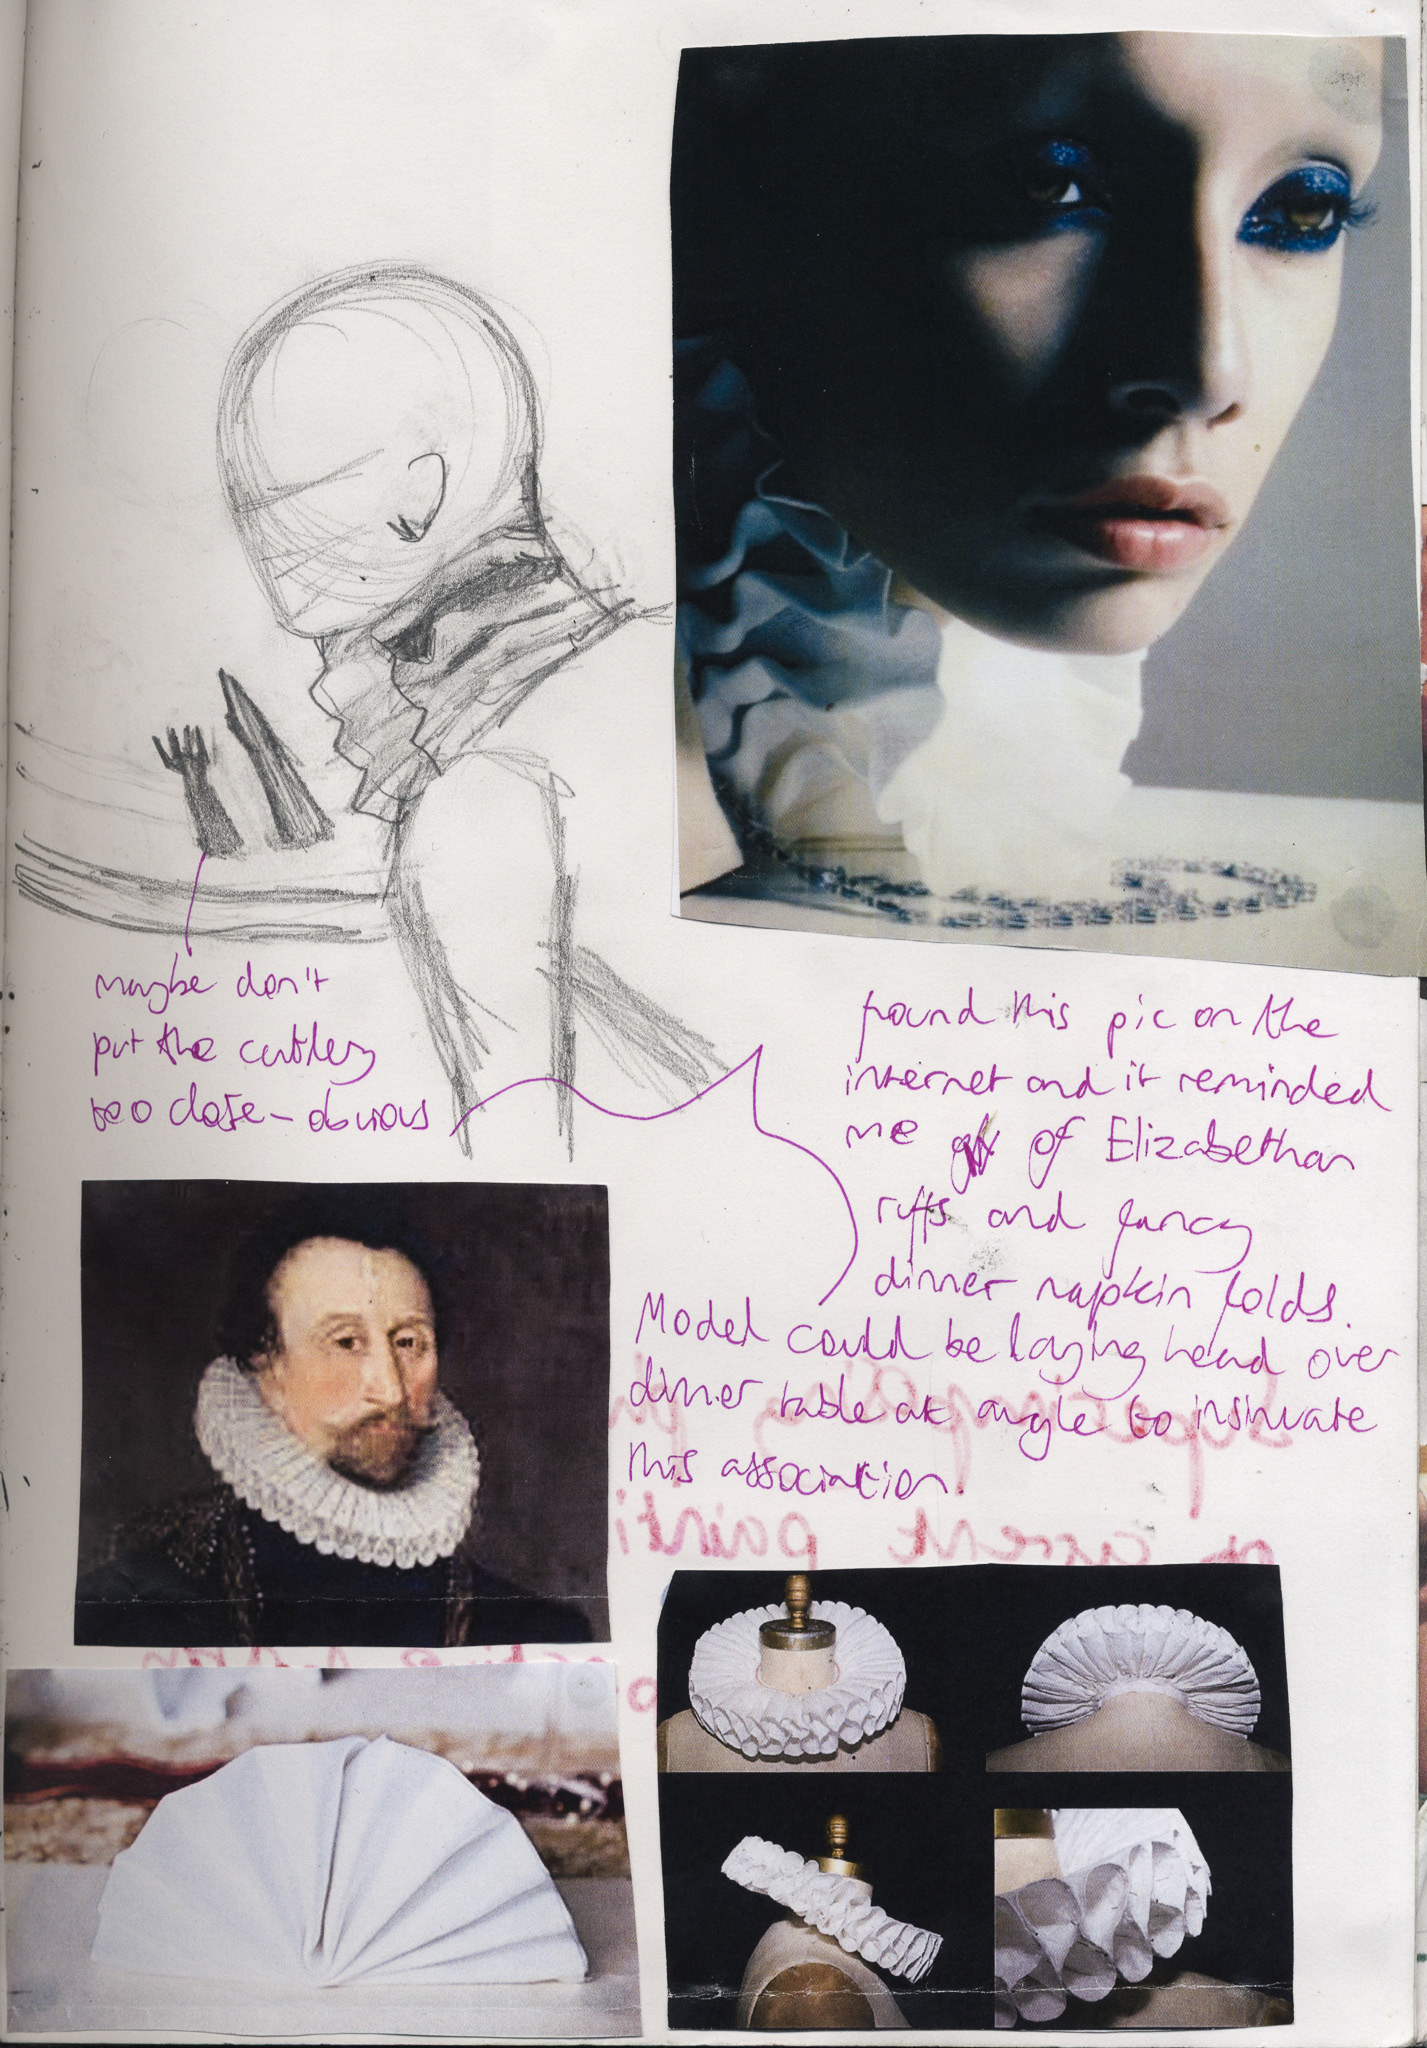 maybe don't
put the cutlery
too close – obvious
found this pic on the
internet and it reminded
me of Elizabethan
ruffs and fancy
dinner napkin folds.
Model could be laying head over
dinner table at angle to insinuate
this association.